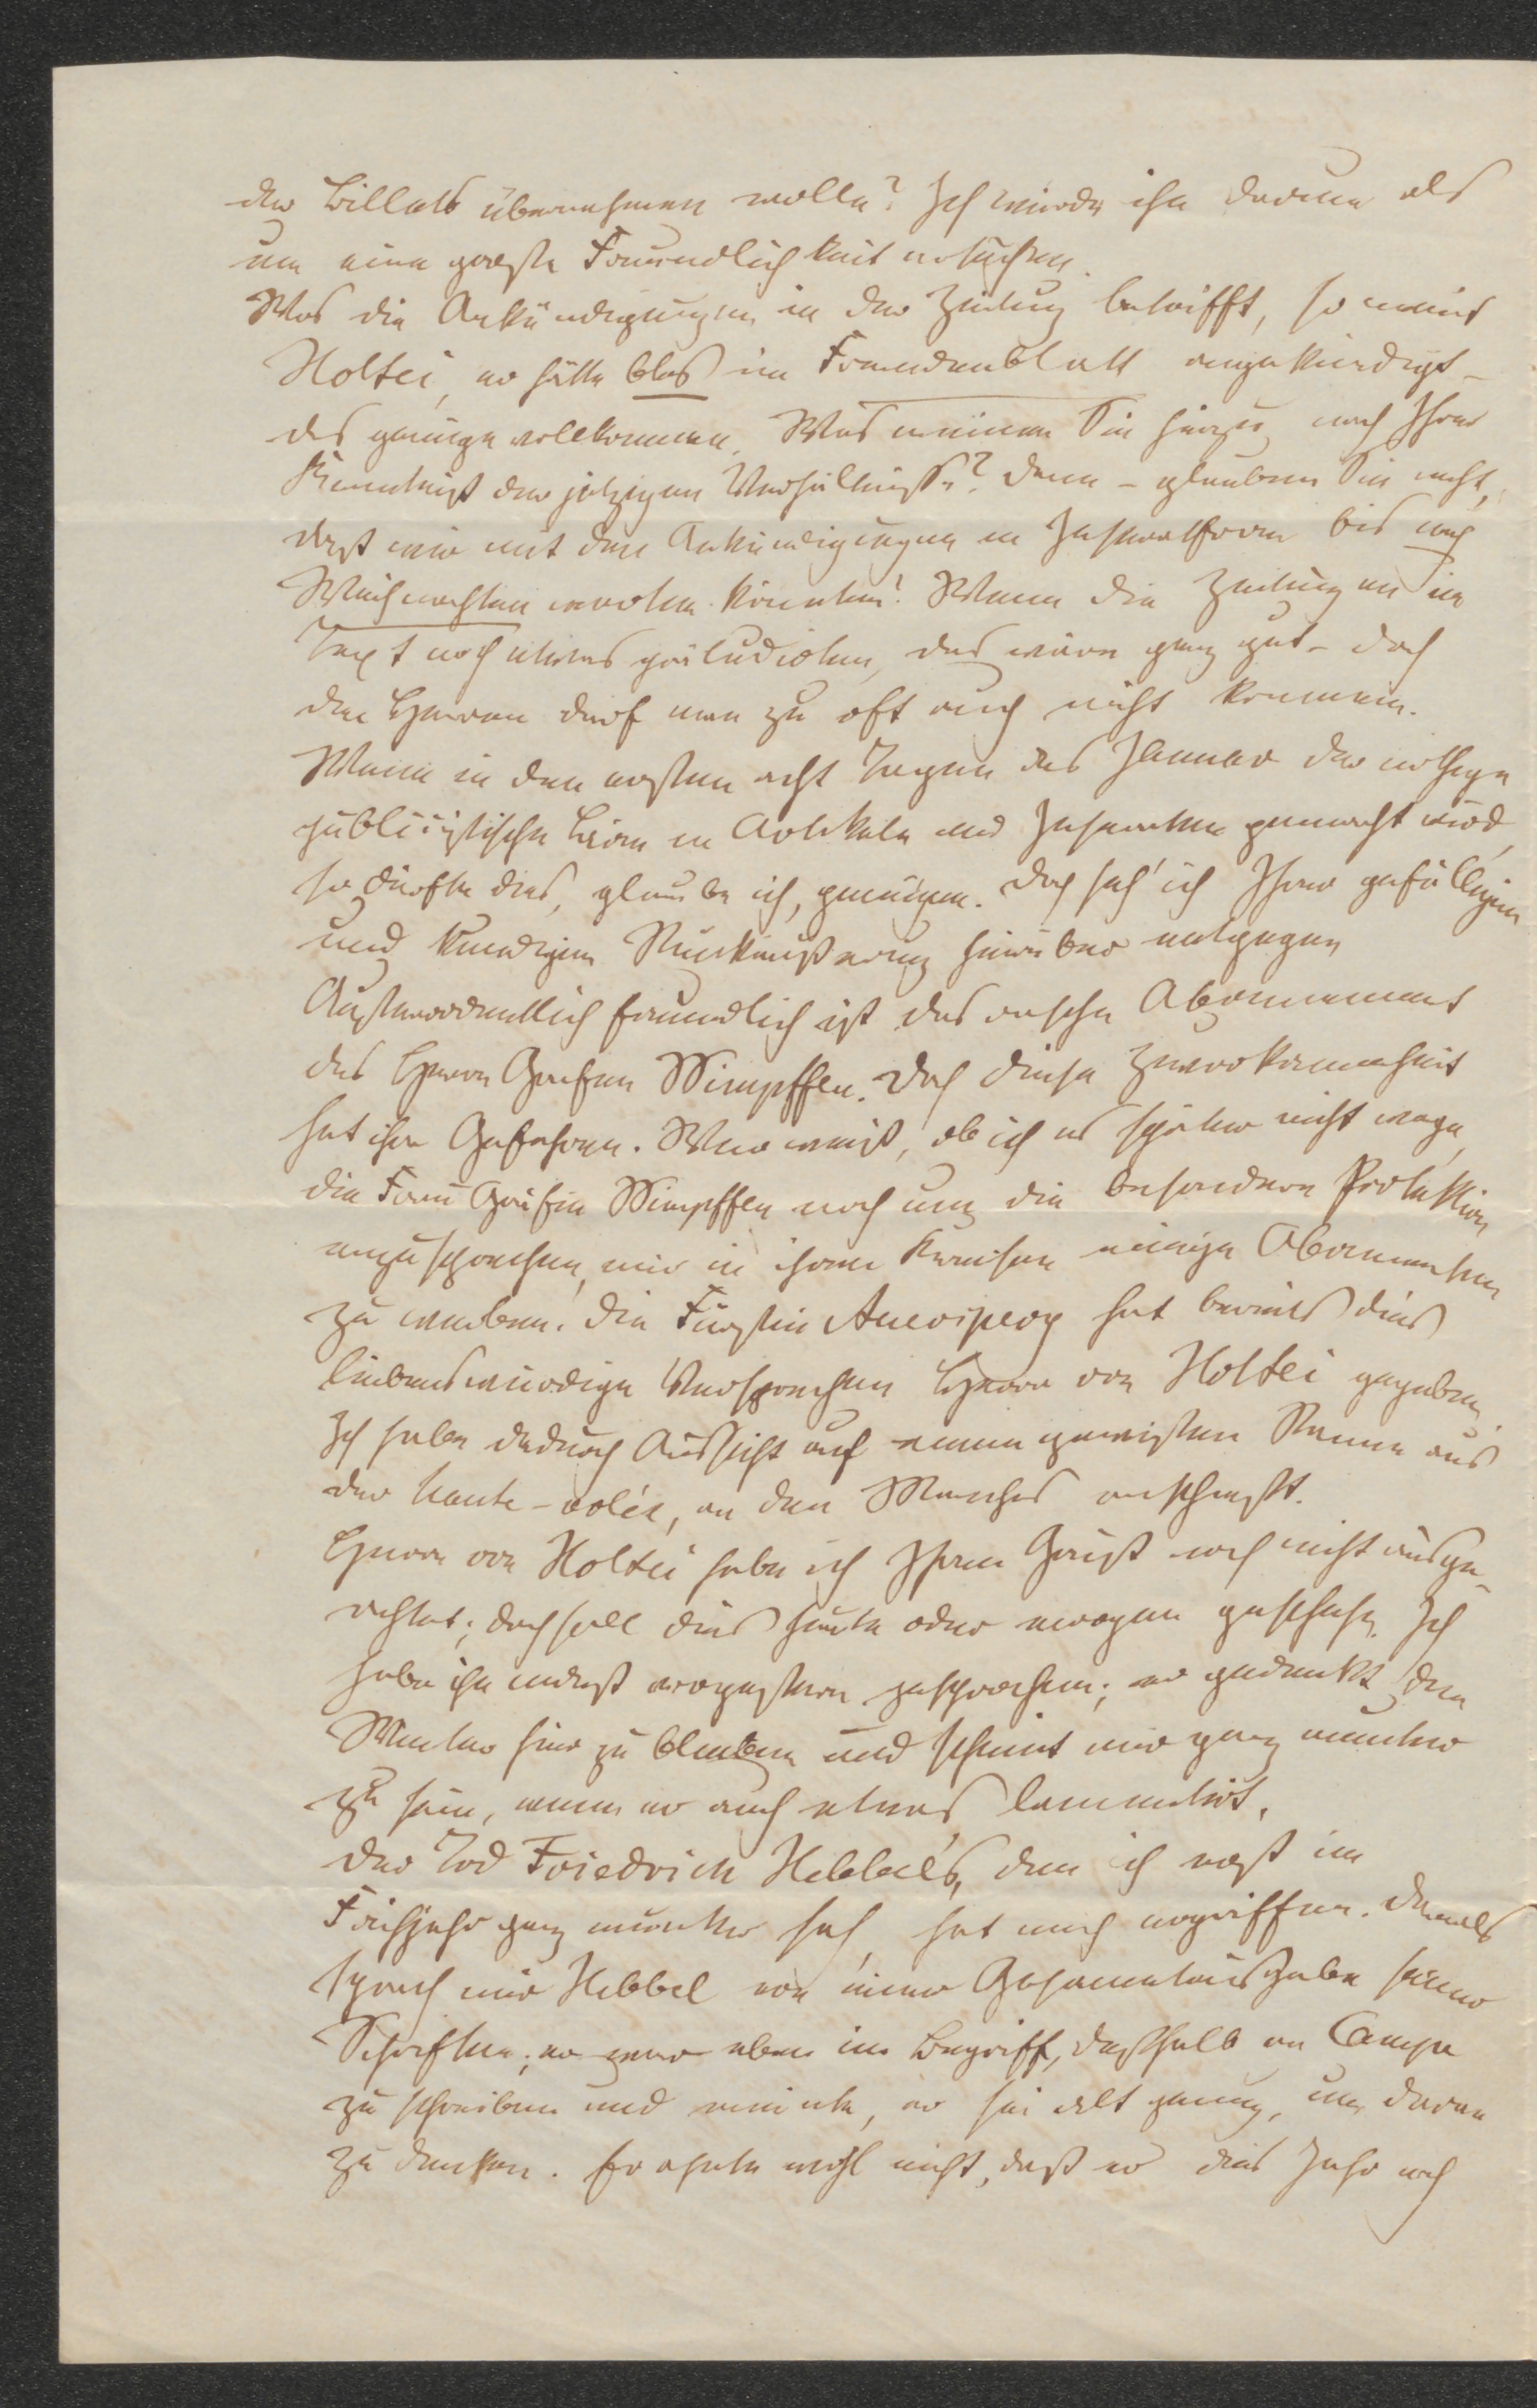 der Billets übernehmen wolle? Ich würde ihn darum als
um eine große Freundlichkeit ersuchen.
Was die Ankündigungen in der Zeitung betrifft, so meint
Holtei, er hätte blos im Fremdenblatt angekündigt –
das genüge vollkommen. Was meinen Sie hierzu nach Ihrer
Kenntniß der jetzigen Verhältnisse? Dann – glauben Sie nicht,
daß wir mit den Ankündigungen in Inseratform bis nach
Weihnachten warten könnten? Wenn die Zeitungen im
Text noch etwas präludirten, das wäre ganz gut – doch
den Herren darf man zu oft auch nicht kommen.
Wenn in den ersten acht Tagen des Januar der nöthige
publicistische Lärm in Artikeln und Inseraten gemacht wird,
so dürfte dies, glaube ich, genügen. Doch seh' ich Ihrer gefälligen
und kundigen Rückäußerung hierüber entgegen.
Außerordentlich freundlich ist das rasche Abonnement
des Herrn Grafen Wimpffen. Doch diese Zuvorkommenheit
hat ihre Gefahren. Wer weiß, ob ich es später nicht wage,
die Frau Gräfin Wimpffen noch um die besondere Protektion
anzusprechen, mir in ihren Kreisen einige Abonnenten
zu werben. Die Fürstin Auersperg hat bereits dies
liebenswürdige Versprechen Herrn von Holtei gegeben.
Ich habe dadurch Aussicht auf einen gewissen Stamm aus
der haute-volée, an den Manches anschießt.
Herrn von Holtei habe ich Ihren Gruß noch nicht ausge-
richtet; doch soll dies heute oder morgen geschehn. Ich
habe ihn indeß vorgestern gesprochen; er gedenkt den
Winter hier zu bleiben und scheint mir ganz munter
zu sein, wenn er auch etwas lamentirt.
Der Tod Friedrich Hebbel's, den ich erst im
Frühjahr ganz munter sah, hat mich ergriffen. Damals
sprach mir Hebbel von einer Gesammtausgabe seiner
Schriften; er war eben im Begriff, deßhalb an Campe
zu schreiben und meinte, er sei alt genug, um daran
zu denken. Er ahnte wohl nicht, daß er dies Jahr noch